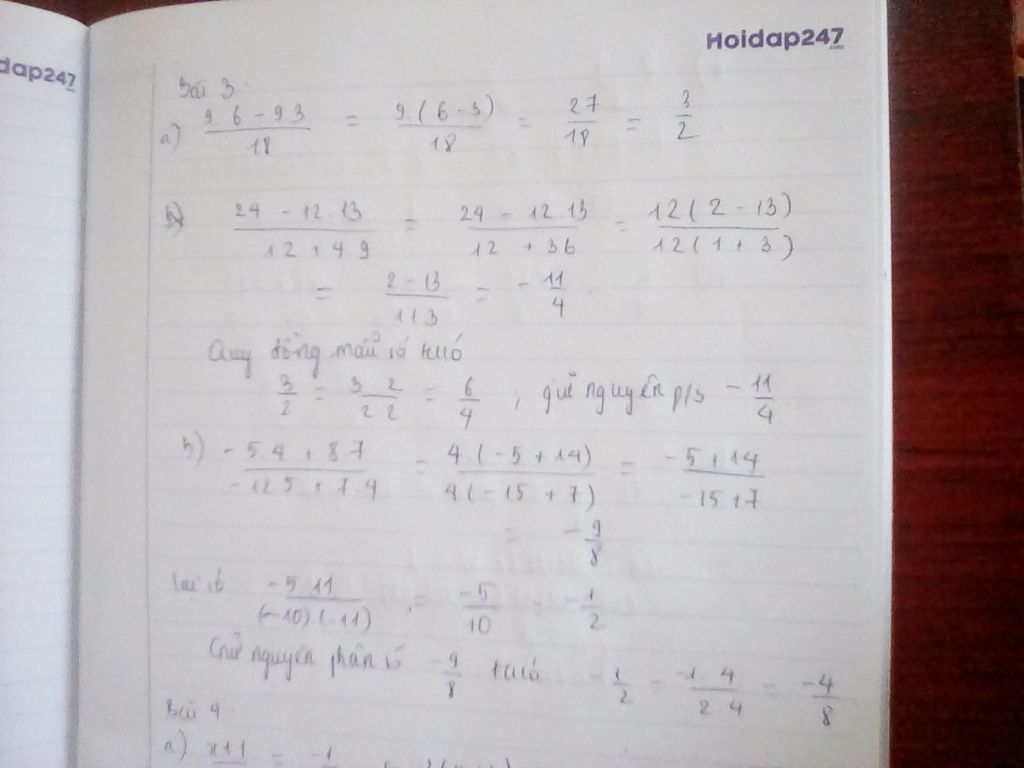 dap247
Hoidap247
.com
Bài 3
a) 9.6 - 9.3 / 18 = 9.(6 - 3) / 18 = 27 / 18 = 3 / 2
24 - 12.13 / 12 + 4.9 = 24 - 12.13 / 12 + 36 = 12(2 - 13) / 12(1 + 3)
= 2 - 13 / 1+3 = - 11 / 4
Quy đồng mẫu số
3 / 2 = 3.2 / 2.2 = 6 / 4 ; giữ nguyên p/s - 11 / 4
b) -5.4 + 8.7 / -12.5 + 7.4 = 4.(-5 + 14) / 4(-15 + 7) = -5+14 / -15+7
= -9 / 8
-5.11 / (-10).(-11) = -5 / 10 = -1 / 2
Giữ nguyên phân số -9 / 8 -1 / 2 = -1.4 / 2.4 = -4 / 8
Bài 4
a) x+1 = -1